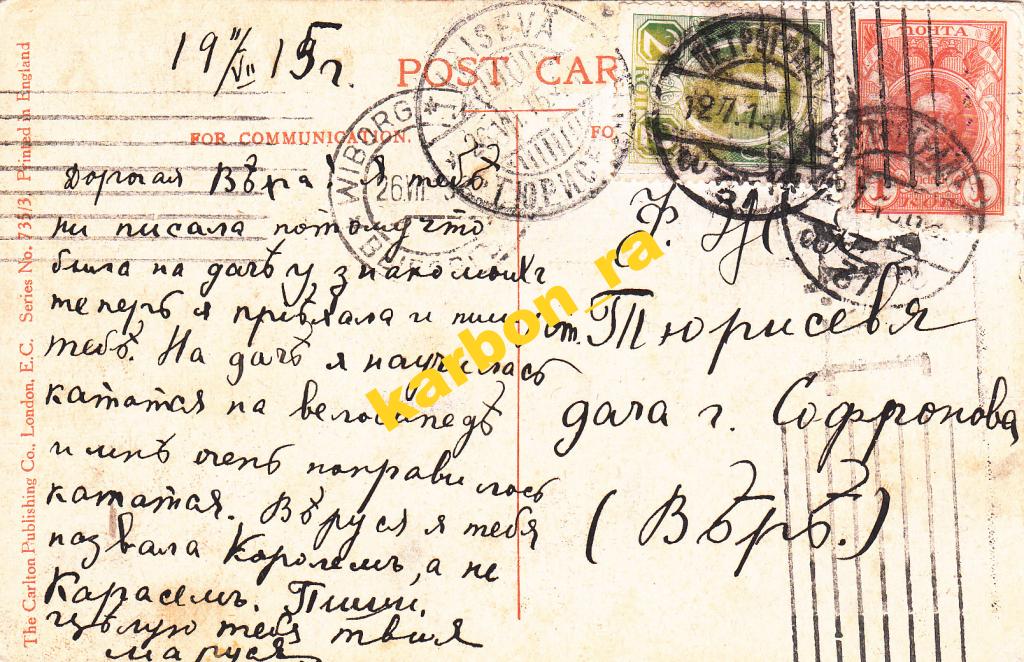 19 11/VII 15 г.
POST CAR
FOR COMMUNICATION.
Дорогая Вѣра! Я тебѣ
ни писала потому что
была на дачѣ у знакомыхъ
теперь я приѣхала и пишу
тебѣ. На дачѣ я научилась
кататся на велосипедѣ
и мнѣ очень понравилось
кататся. Вѣруся я тебя
назвала Королемъ, а не
Карасемъ. Пиши.
цѣлую тебя твия
маруся.
ст. Тюрисевя
дача г. Софронова
(Вѣрѣ.)
The Carlton Publishing Co., London, E.C. Series No. 732/3 Printed in England
WIBORG
26.VII
ПЕТРОГРАД
12.7.15
ПОЧТА
karbon_ra